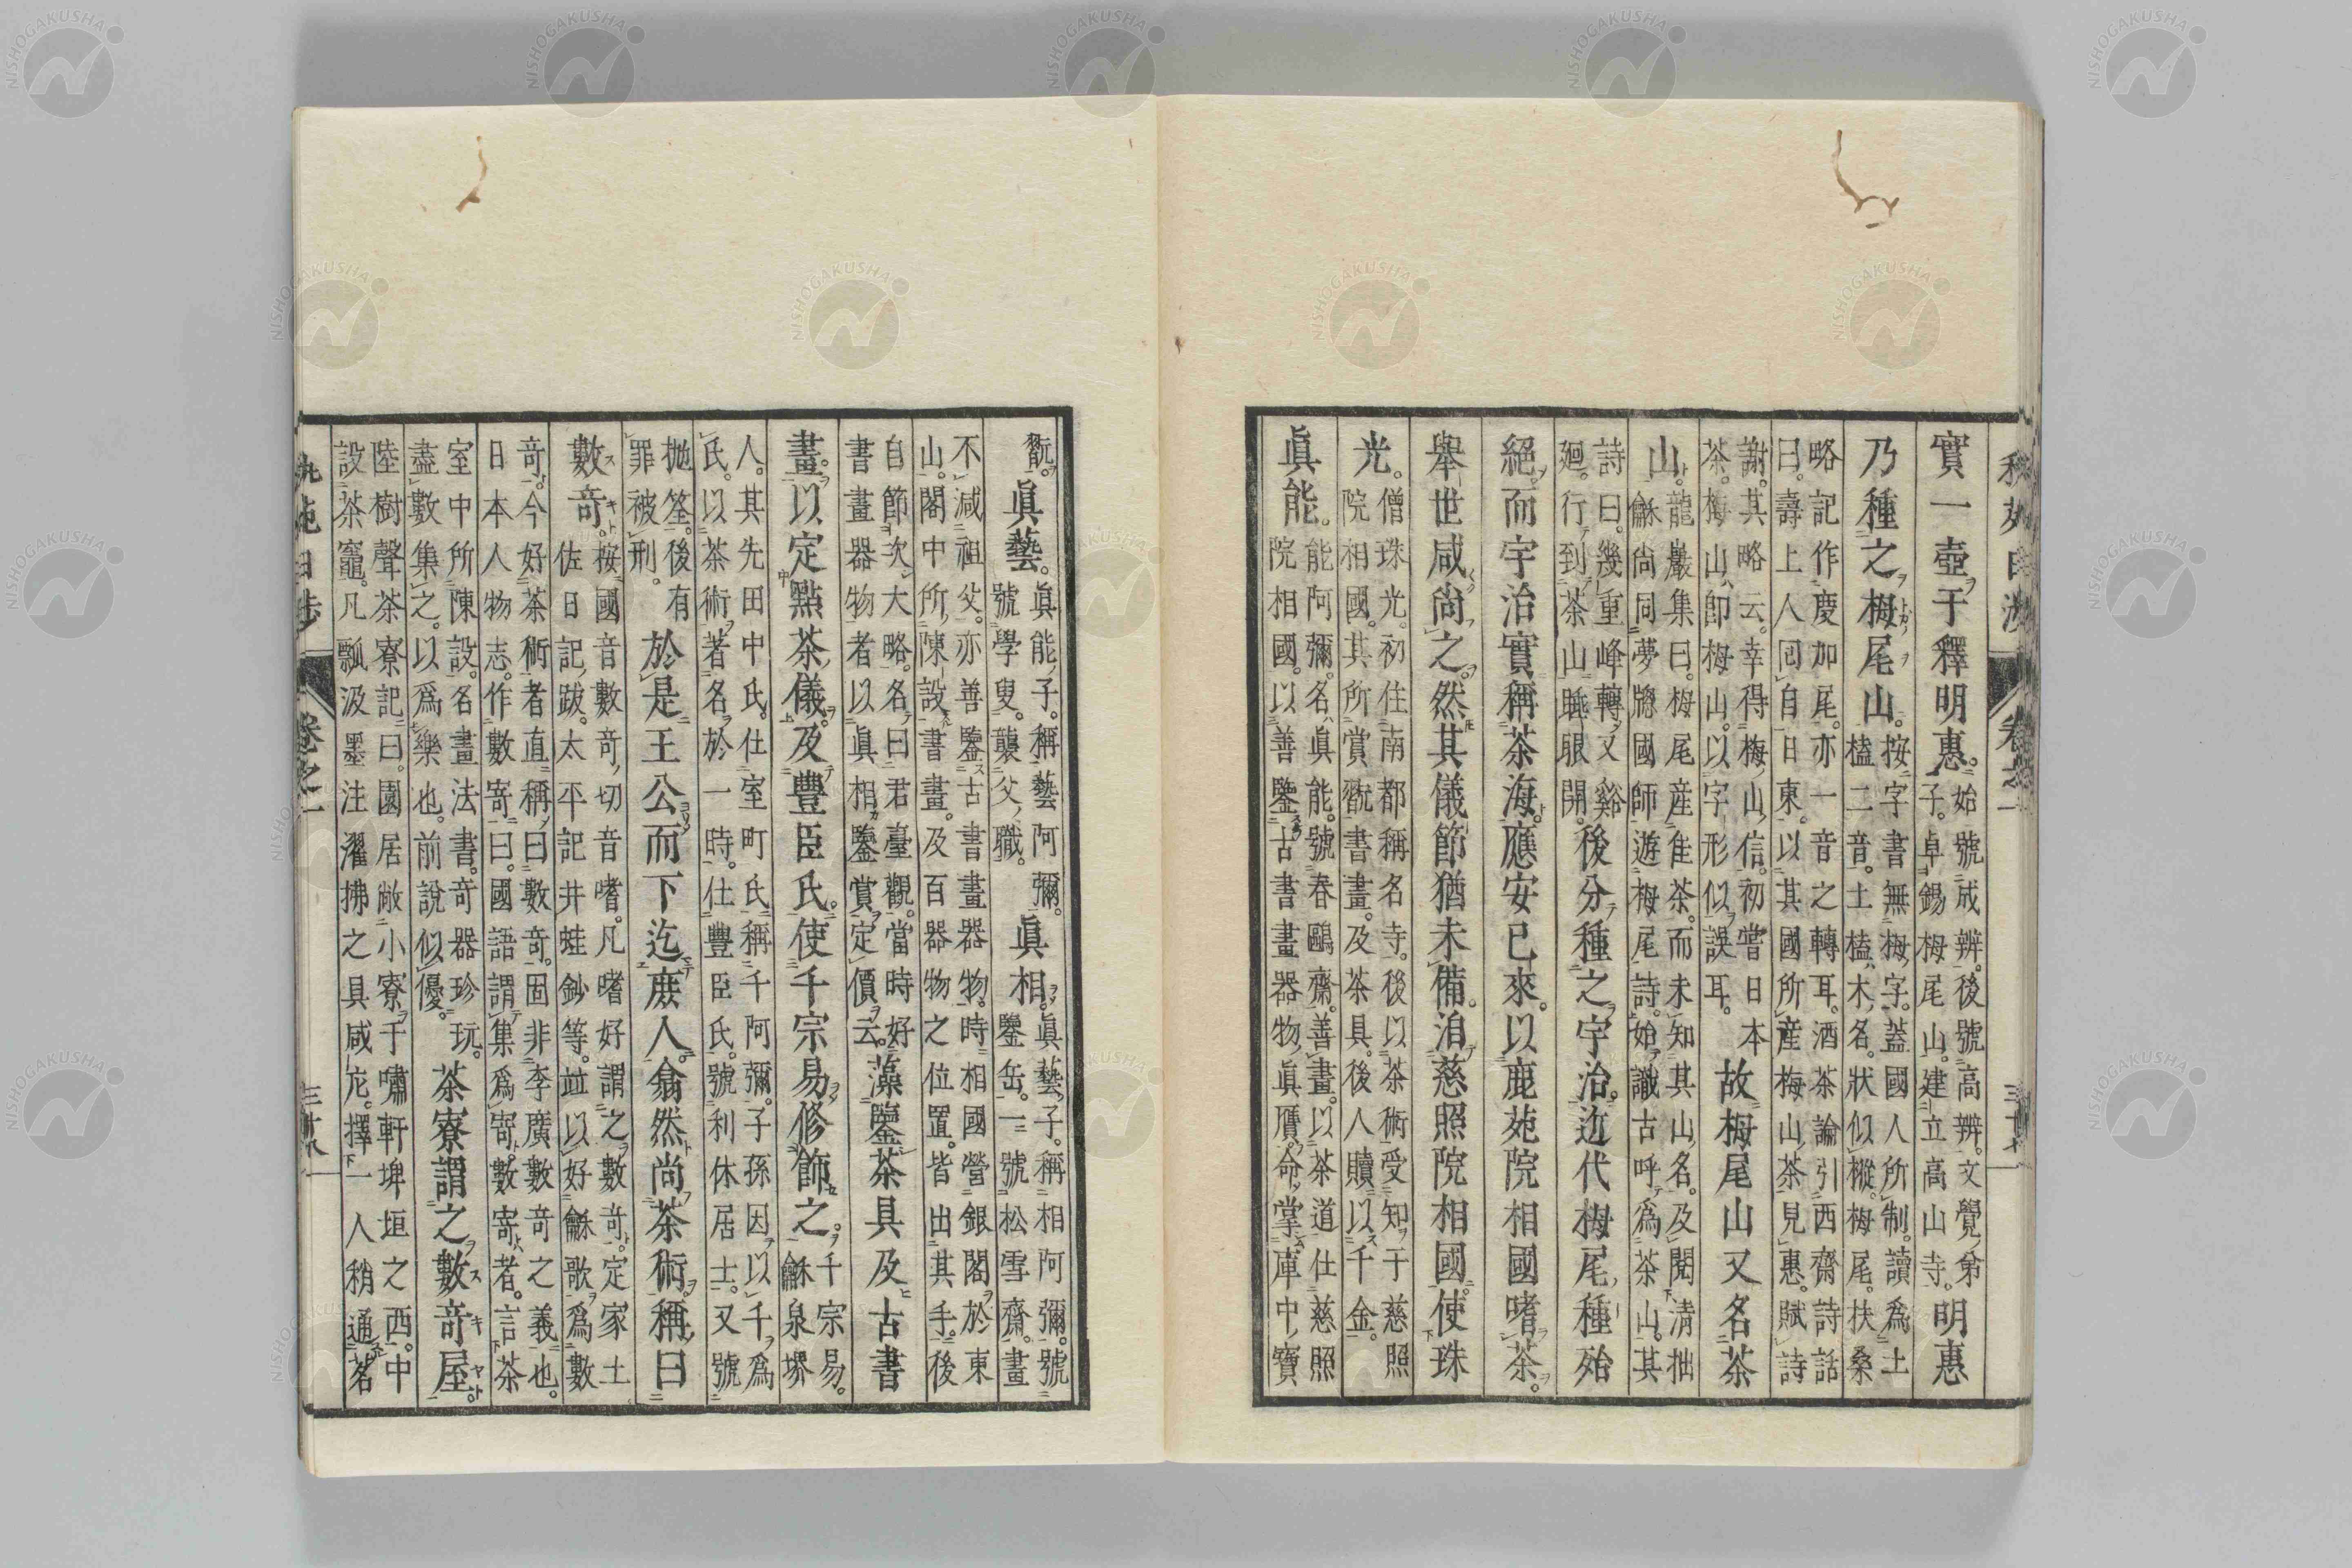 實一壺于釋明惠。始號成辨。後號高辨。文覺弟
子。卓錫栂尾山。建立高山寺。明惠
乃種之栂尾山。按字書無栂字。蓋國人所制。讀爲土
榼二音。土榼木名。狀似樅。栂尾。扶桑
略記作慶加尾。亦一音之轉耳。酒茶論引西齋詩話
曰。壽上人回自日東。以其國所產梅山茶見惠。賦詩
謝。其略云。幸得梅山信。初嘗日本
茶。梅山即栂山。以字形似誤耳。故栂尾山又名茶
山。龍巖集曰。栂尾產佳茶。而未知其山名。及閱清拙
龢尚同夢牕國師遊栂尾詩。始識古呼爲茶山。其
詩曰。幾重峰轉又谿
廻。行到茶山睡眼開。後分種之宇治。迩代栂尾種殆
絕。而宇治實稱茶海。應安已來。以鹿苑院相國嗜茶。
舉世咸尚之。然其儀節猶未備。洎慈照院相國。使珠
光。僧珠光。初住南都稱名寺。後以茶術受知于慈照
院相國。其所賞翫書畫。及茶具。後人贖以千金。
眞能。能阿彌。名眞能。號春鷗齋。善畫。以茶道仕慈照
院相國。以善鑒古書畫器物眞贋。命掌庫中寶
翫。眞藝。眞能子。稱藝阿彌。
號學叟。襲父職。眞相。眞藝子。稱相阿彌。號
鑒岳。一號松雪齋。畫
不減祖父。亦善鑒古書畫器物。時相國營銀閣於東
山。閣中所陳設書畫。及百器物之位置。皆出其手。後
自節次大略。名曰君臺觀。當時好
書畫器物者以眞相鑒賞定價云。藻鑒茶具及古書
畫。以定點茶儀。及豐臣氏。使千宗易修飾之。千宗易。
龢泉堺
人。其先田中氏。仕室町氏稱千阿彌。子孫因以千爲
氏。以茶術著名於一時。仕豐臣氏。號利休居士。又號
拋筌。後有
罪被刑。於是王公而下迄庶人。翕然尚茶術。稱曰
數奇。按國音數奇切音嗜。凡嗜好謂之數奇。定家土
佐日記跋。太平記井蛙鈔等。竝以好龢歌爲數
奇。今好茶術者直稱曰數奇。固非李廣數奇之義也。
日本人物志。作數寄。曰。國語謂集爲寄。數寄者。言茶
室中所陳設。名畫法書。奇器珍玩。
盡數集之。以爲樂也。前說似優。茶寮謂之數奇屋。
陸樹聲茶寮記曰。園居敞小寮于嘯軒埤垣之西。中
設茶竈。凡瓢汲罌注濯拂之具咸庀。擇一人稍通茗
卷之一
NISHOGAKUSHA